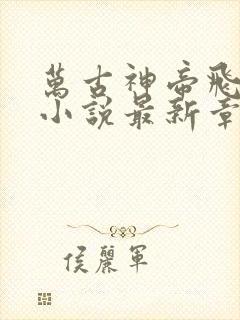 萬古神帝飛
小說最新章
侯麗軍